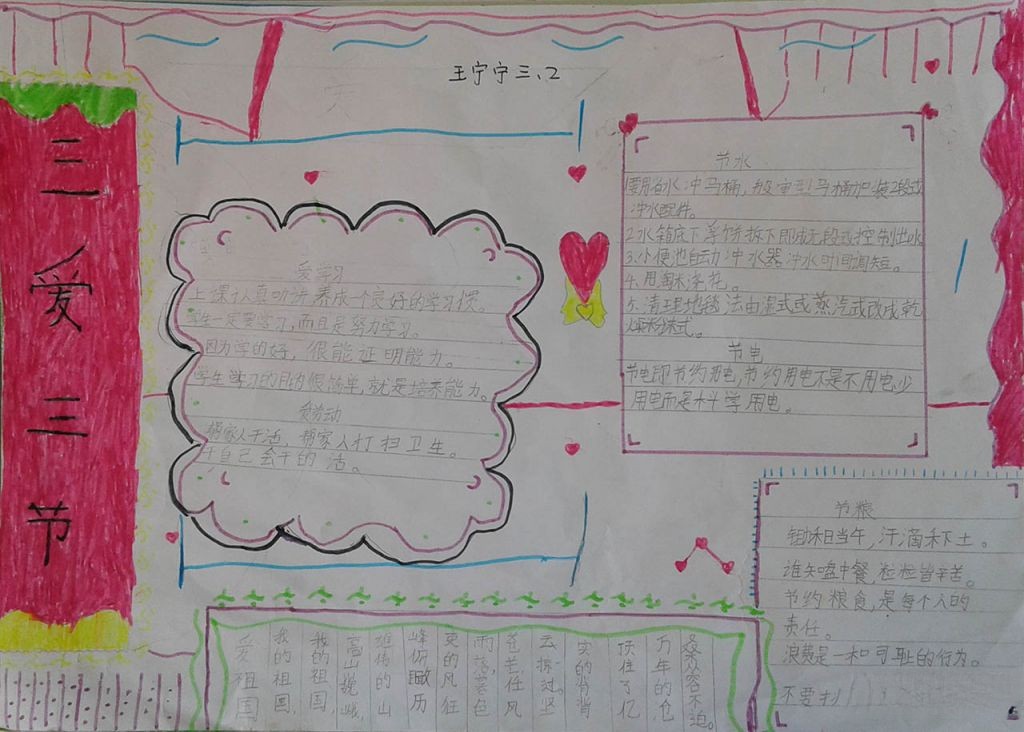 三爱三节
王宁宁三、2
爱学习
上课认真听讲 养成一个良好的学习惯。
学生一定要学习,而且是努力学习。
因为学的好,很能证明能力。
学生学习的目的很简单,就是培养能力。
爱劳动
帮家人干活,帮家人打扫卫生。
干自己会干的活。
节水
马桶加装2段式
冲水配件。
2.水箱底下
3.小便池自动冲水器冲水时间调短。
4.用淘米水浇花。
5.清理地毯法由湿式或蒸汽式改成乾
燥粉沫式。
节电
节电即节约用电,节约用电不是不用电少
用电而是科学用电。
节粮
锄禾日当午,汗滴禾下土。
谁知盘中餐 粒粒皆辛苦。
节约粮食,是每个人的
责任。
浪费是一种可耻的行为。
不要扔
爱祖国
我的祖国,
我的祖国,
高山巍峨,
雄伟的山
峰俯瞰历
史的风狂
雨落,暮色
苍茫,任风
云掠过。坚
实的脊背
顶住了亿
万年的沧
桑从容不迫。